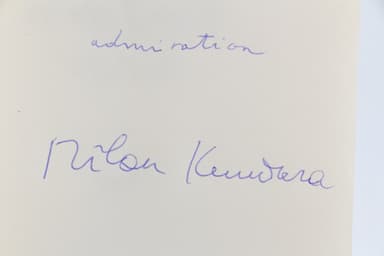 admiration
Milan Kundera